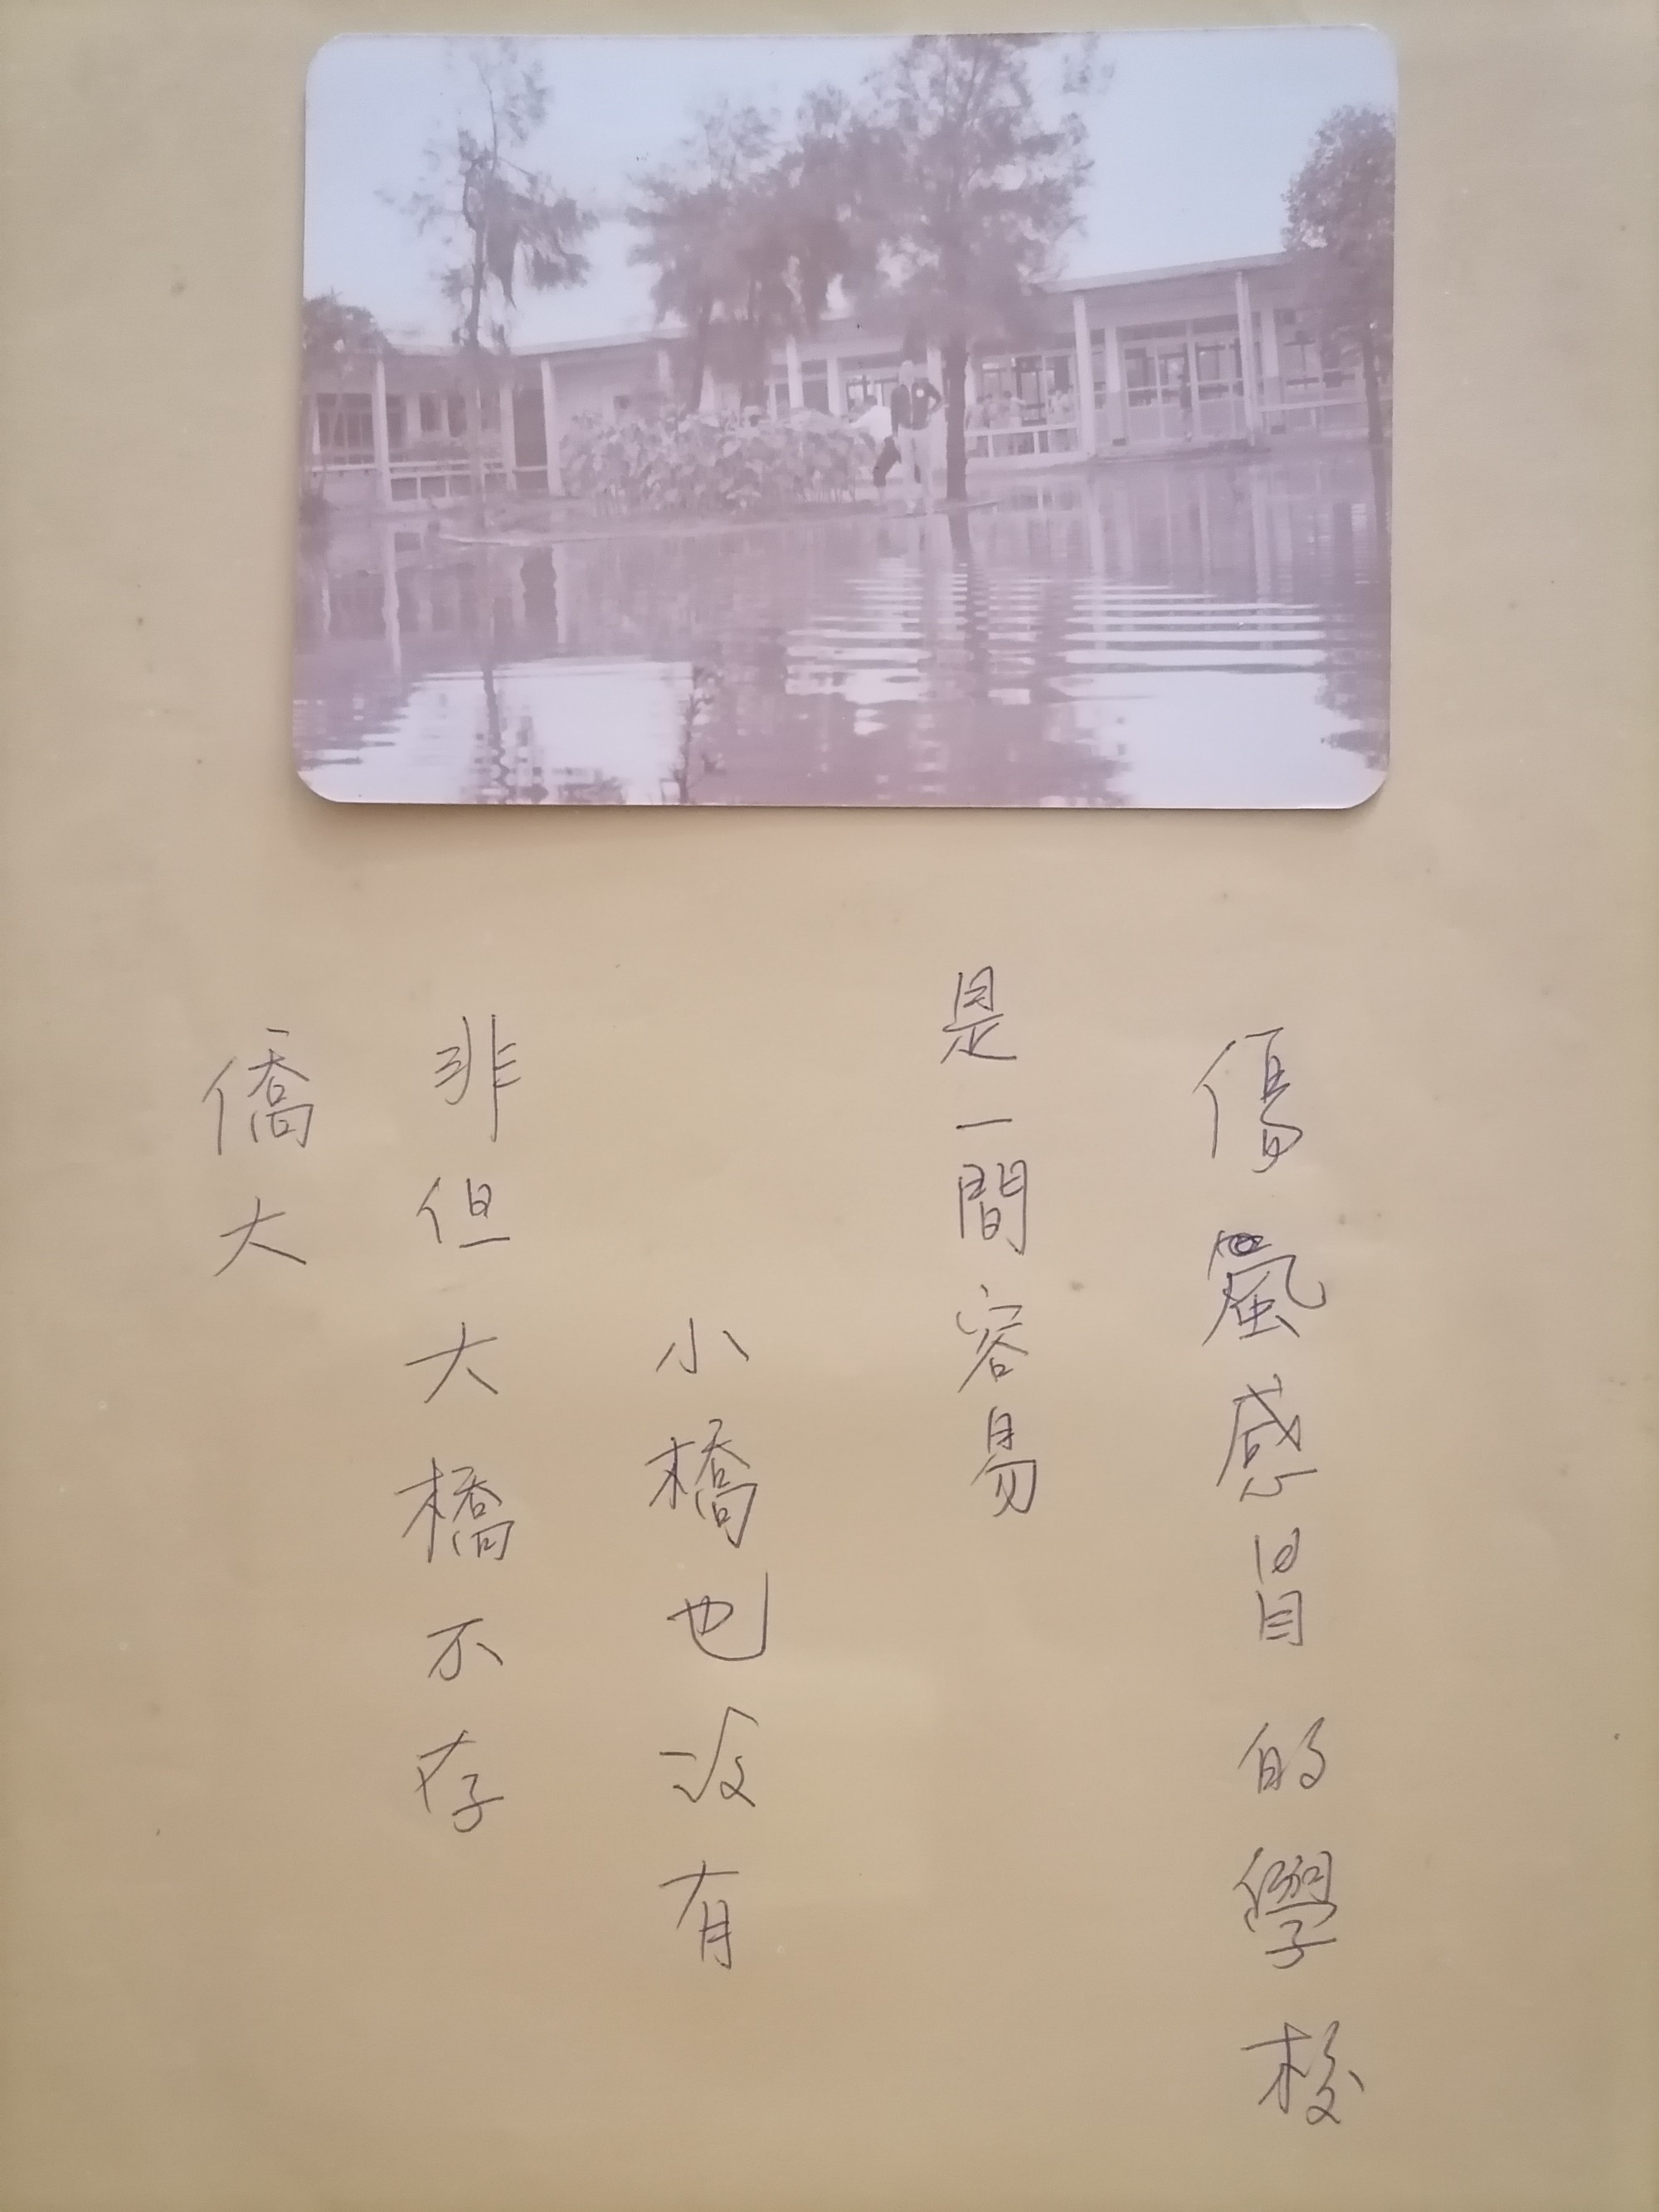 僑大
非但大橋不存
小橋也沒有
是一間容易
傷風感冒的學校